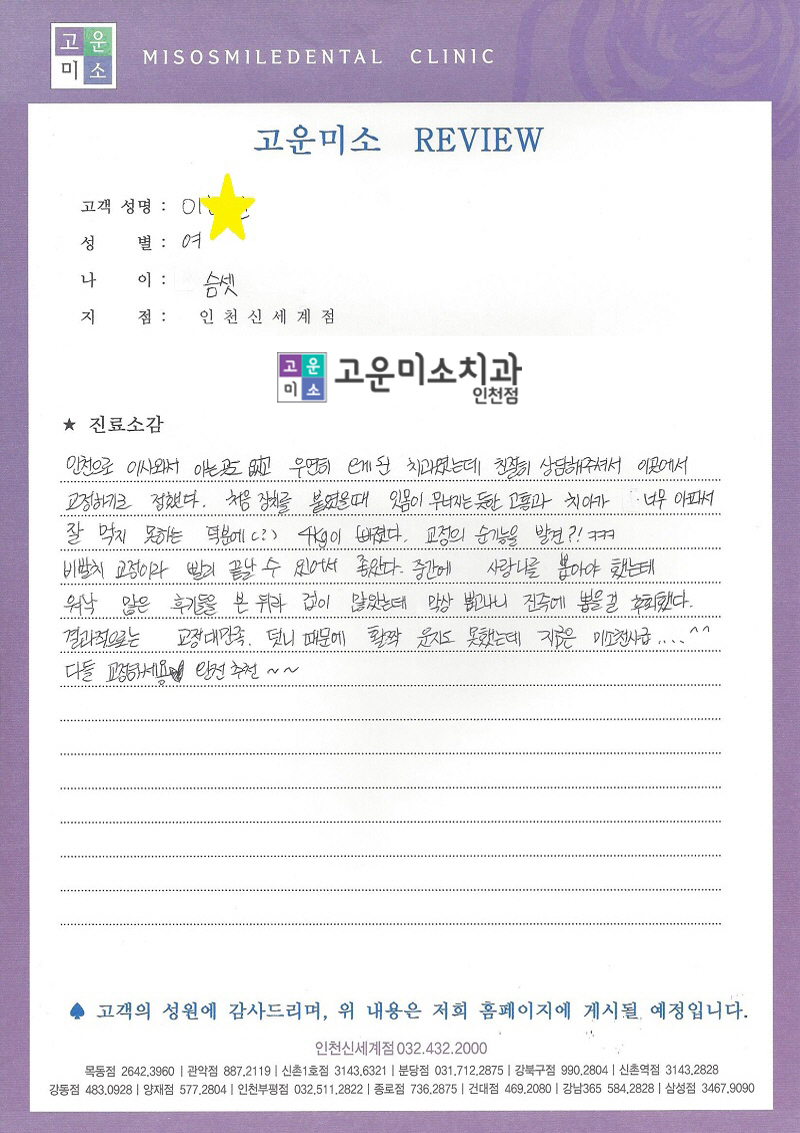 고운
미소
MISOSMILEDENTAL CLINIC
고운미소 REVIEW
고객 성명 : 이
성 별 : 여
나 이 : 슴셋
지 점 : 인천신세계점
고운
미소
고운미소치과
인천점
★ 진료소감
인천으로 이사와서 아는곳도 없고 우연히 오게 된 치과였는데 친절히 상담해주셔서 이곳에서
교정하기로 정했다. 처음 장치를 붙였을때 잇몸이 무너지는듯한 고통과 치아가 너무 아파서
잘 먹지 못하는 덕분에(?) 4kg이 빠졌다. 교정의 순기능을 발견?! ㅋㅋㅋ
비발치 교정이라 빨리 끝날 수 있어서 좋았다. 중간에 사랑니를 뽑아야 했는데
워낙 많은 후기들을 본 뒤라 겁이 많았는데 막상 뽑고나니 진즉에 뽑을걸 후회했다.
결과적으로는 교정대만족. 덧니 때문에 활짝 웃지도 못했는데 지금은 미소천사급....^^
다들 교정하세용 완전 추천~~
♠ 고객의 성원에 감사드리며, 위 내용은 저희 홈페이지에 게시될 예정입니다.
인천신세계점 032.432.2000
목동점 2642.3960 | 관악점 887.2119 | 신촌1호점 3143.6321 | 분당점 031.712.2875 | 강북구점 990.2804 | 신촌역점 3143.2828
강동점 483.0928 | 양재점 577.2804 | 인천부평점 032.511.2822 | 종로점 736.2875 | 건대점 469.2080 | 강남365 584.2828 | 삼성점 3467.9090